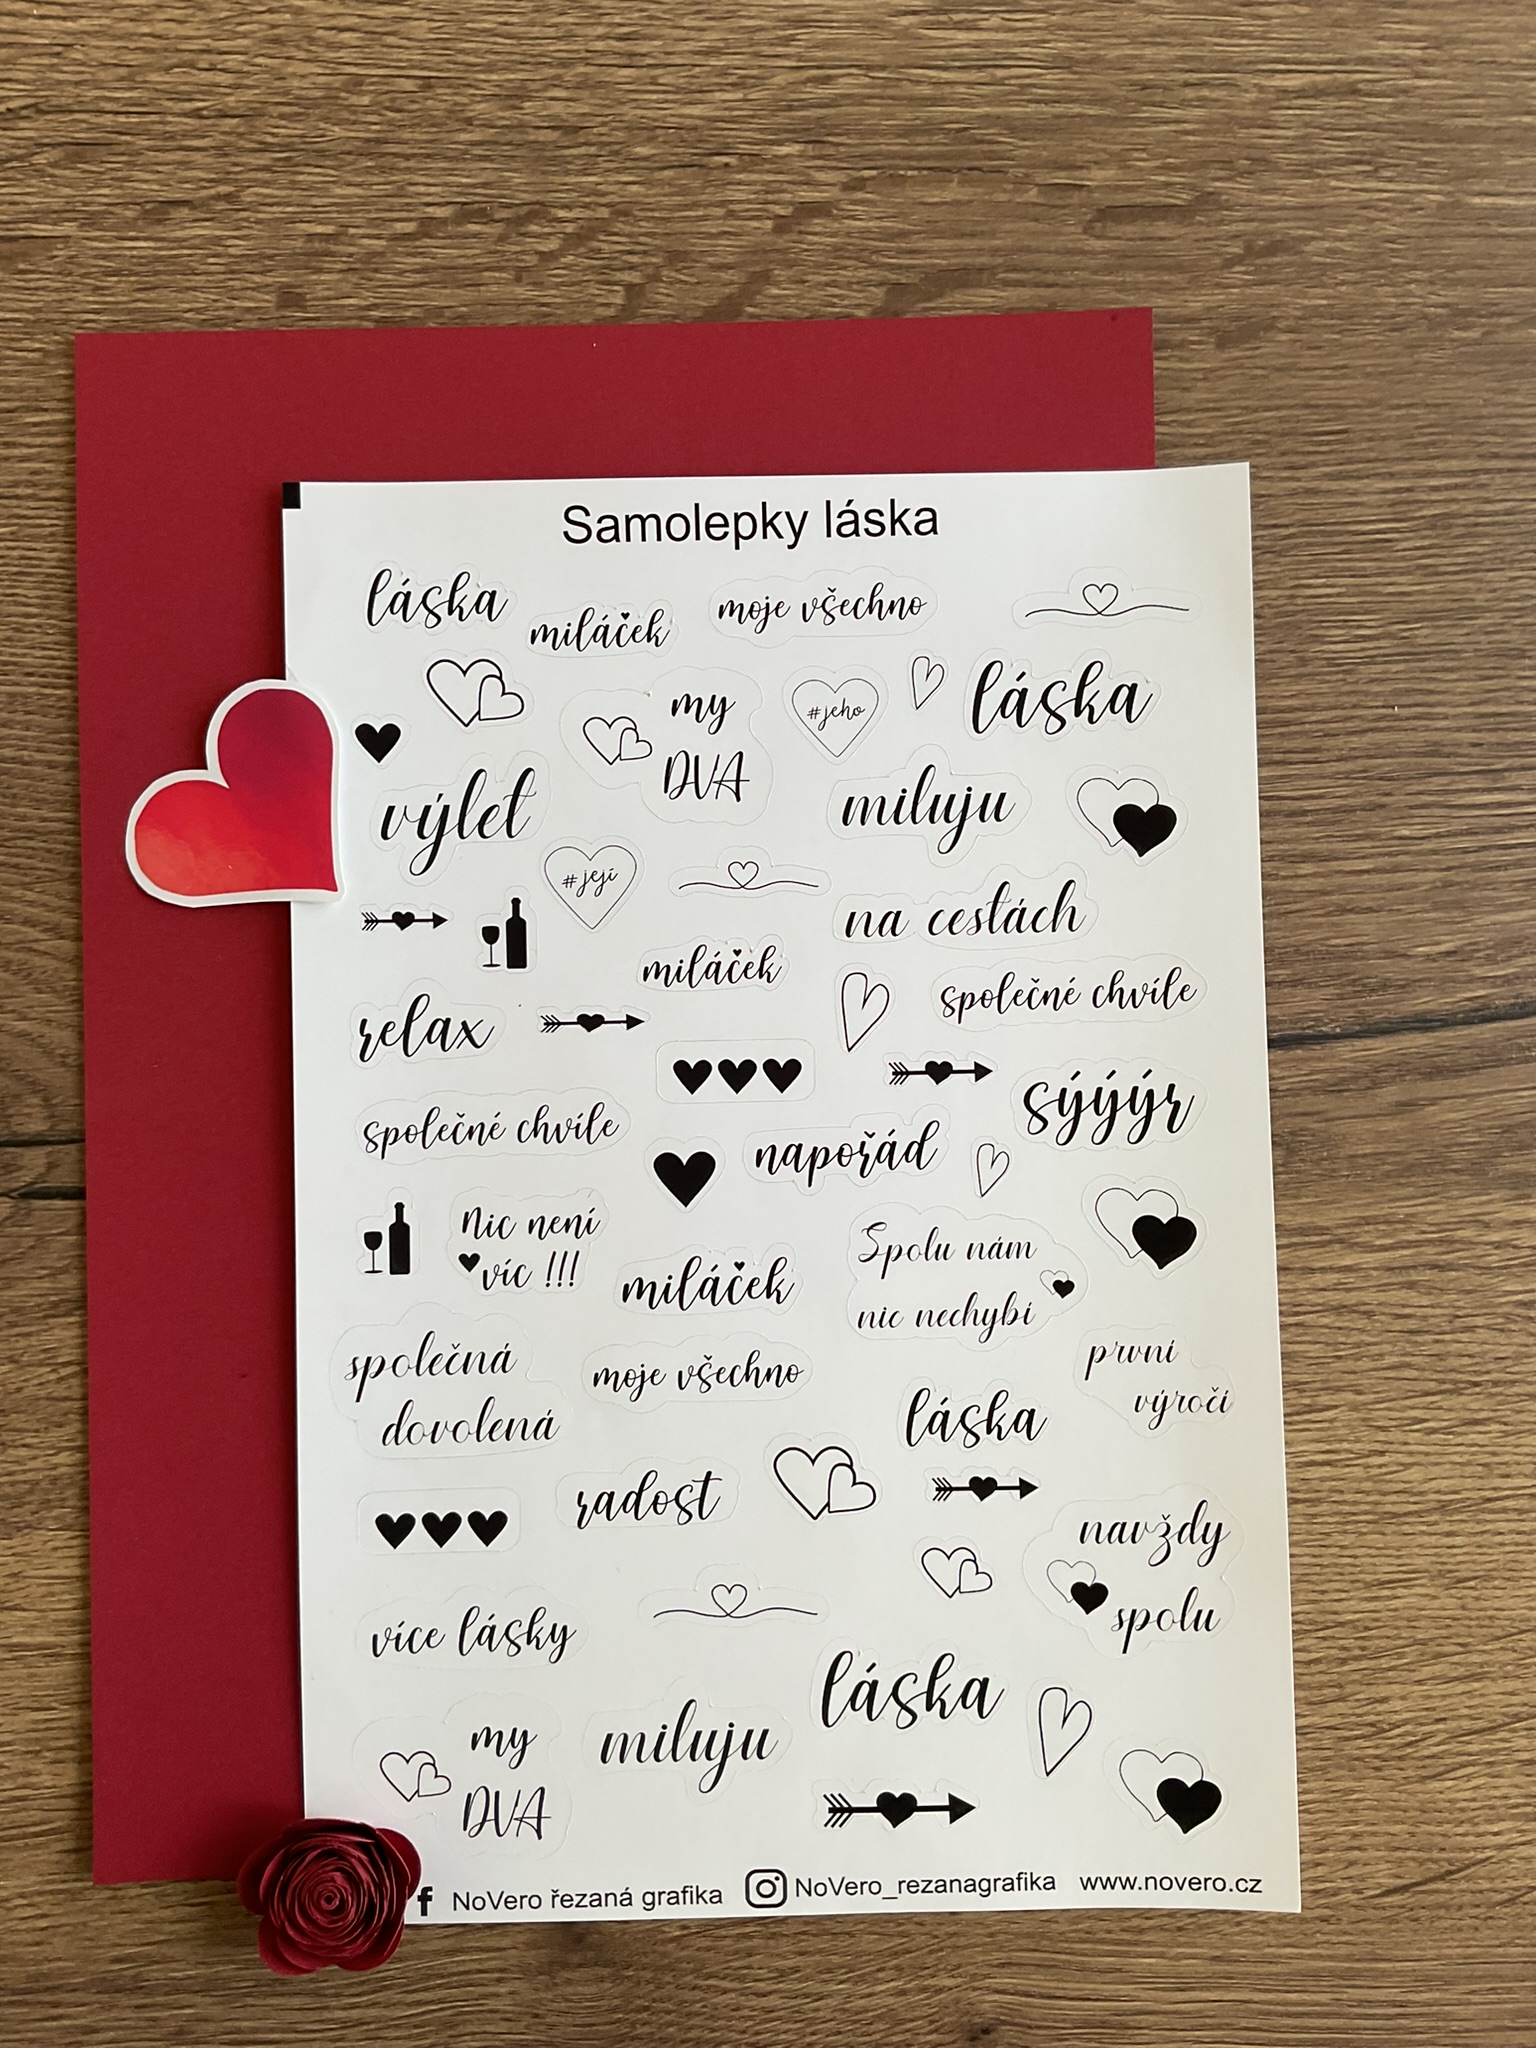 Samolepky láska
láska
miláček
moje všechno
my
DVA
#jeho
láska
výlet
miluju
#její
na cestách
miláček
společné chvíle
relax
sýýýr
společné chvíle
napořád
Nic není
víc !!!
miláček
Spolu nám
nic nechybí
společná
dovolená
moje všechno
první
výročí
láska
radost
navždy
spolu
více lásky
láska
my
DVA
miluju
NoVero řezaná grafika NoVero_rezanagrafika www.novero.cz